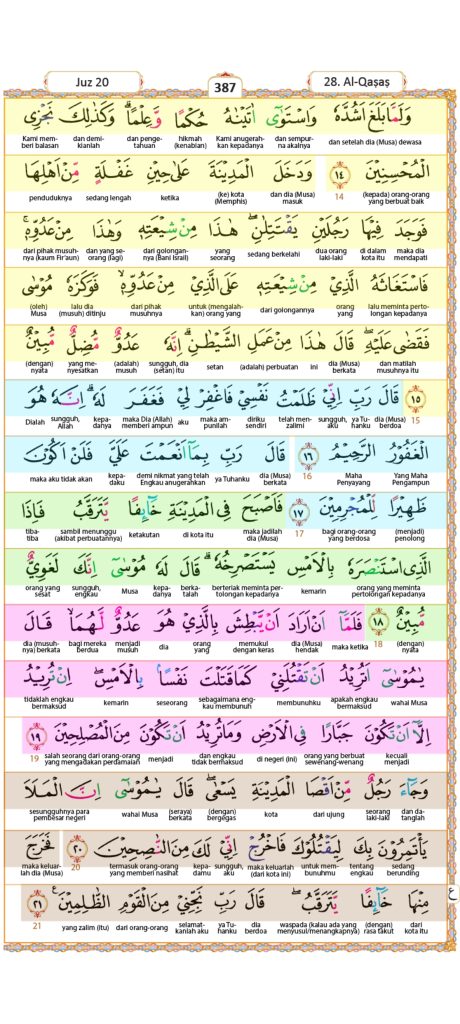 Juz 20
387
28. Al-Qaṣaṣ
وَلَمَّا بَلَغَ اَشُدَّهٗ وَاسْتَوٰٓى اٰتَيْنٰهُ حُكْمًا وَّعِلْمًاۗ وَكَذٰلِكَ نَجْزِى
dan setelah dia (Musa) dewasa dan sempurna akalnya Kami anugerahkan kepadanya hikmah (kenabian) dan pengetahuan dan demikianlah Kami memberi balasan
الْمُحْسِنِيْنَ ١٤ وَدَخَلَ الْمَدِيْنَةَ عَلٰى حِيْنِ غَفْلَةٍ مِّنْ اَهْلِهَا
(kepada) orang-orang yang berbuat baik 14 dan dia (Musa) masuk (ke) kota (Memphis) ketika sedang lengah penduduknya
فَوَجَدَ فِيْهَا رَجُلَيْنِ يَقْتَتِلٰنِۖ هٰذَا مِنْ شِيْعَتِهٖ وَهٰذَا مِنْ عَدُوِّهٖۚ
maka dia mendapati di dalam kota itu dua orang laki-laki sedang berkelahi yang seorang dari golongannya (Bani Israil) dan yang seorang (lagi) dari pihak musuhnya (kaum Fir'aun)
فَاسْتَغَاثَهُ الَّذِيْ مِنْ شِيْعَتِهٖ عَلَى الَّذِيْ مِنْ عَدُوِّهٖۙ فَوَكَزَهٗ مُوْسٰى
lalu meminta pertolongan kepadanya orang yang dari golongannya untuk (mengalahkan) orang yang dari pihak musuhnya lalu dia (musuh) ditinju (oleh) Musa
فَقَضٰى عَلَيْهِۖ قَالَ هٰذَا مِنْ عَمَلِ الشَّيْطٰنِۗ اِنَّهٗ عَدُوٌّ مُّضِلٌّ مُّبِيْنٌ
dan matilah musuhnya itu dia (Musa) berkata ini (adalah) perbuatan setan sungguh, dia (setan) itu (adalah) musuh yang menyesatkan (dengan) nyata
١٥ قَالَ رَبِّ اِنِّيْ ظَلَمْتُ نَفْسِيْ فَاغْفِرْ لِيْ فَغَفَرَ لَهٗۗ اِنَّهٗ هُوَ
15 dia (Musa) berdoa ya Tuhanku sungguh, aku telah menzalimi diriku sendiri maka ampunilah aku maka Dia (Allah) memberi ampun kepadanya sungguh, Allah Dialah
الْغَفُوْرُ الرَّحِيْمُ ١٦ قَالَ رَبِّ بِمَآ اَنْعَمْتَ عَلَيَّ فَلَنْ اَكُوْنَ
Yang Maha Pengampun Maha Penyayang 16 dia (Musa) berkata ya Tuhanku demi nikmat yang telah Engkau anugerahkan kepadaku maka aku tidak akan
ظَهِيْرًا لِّلْمُجْرِمِيْنَ ١٧ فَاَصْبَحَ فِى الْمَدِيْنَةِ خَاۤىِٕفًا يَّتَرَقَّبُ فَاِذَا
(menjadi) penolong bagi orang-orang yang berdosa 17 maka jadilah dia (Musa) di kota itu ketakutan sambil menunggu (akibat perbuatannya) tiba-tiba
الَّذِى اسْتَنْصَرَهٗ بِالْاَمْسِ يَسْتَصْرِخُهٗۗ قَالَ لَهٗ مُوْسٰٓى اِنَّكَ لَغَوِيٌّ
orang yang meminta pertolongan kepadanya kemarin berteriak meminta pertolongan kepadanya berkatalah kepadanya Musa sungguh, engkau orang yang sesat
مُّبِيْنٌ ١٨ فَلَمَّآ اَنْ اَرَادَ اَنْ يَّبْطِشَ بِالَّذِيْ هُوَ عَدُوٌّ لَّهُمَاۙ قَالَ
(dengan) nyata 18 maka ketika dia (Musa) hendak memukul dengan keras orang yang dia menjadi musuh bagi mereka berdua dia (musuhnya) berkata
يٰمُوْسٰٓى اَتُرِيْدُ اَنْ تَقْتُلَنِيْ كَمَا قَتَلْتَ نَفْسًاۢ بِالْاَمْسِۖ اِنْ تُرِيْدُ
wahai Musa apakah engkau bermaksud membunuhku sebagaimana engkau membunuh seseorang kemarin tidaklah engkau bermaksud
اِلَّآ اَنْ تَكُوْنَ جَبَّارًا فِى الْاَرْضِ وَمَا تُرِيْدُ اَنْ تَكُوْنَ مِنَ الْمُصْلِحِيْنَ ١٩
kecuali menjadi orang yang berbuat sewenang-wenang di negeri (ini) dan engkau tidak bermaksud menjadi salah seorang dari orang-orang yang mengadakan perdamaian 19
وَجَاۤءَ رَجُلٌ مِّنْ اَقْصَا الْمَدِيْنَةِ يَسْعٰىۖ قَالَ يٰمُوْسٰٓى اِنَّ الْمَلَاَ
dan datanglah seorang laki-laki dari ujung kota (dengan) bergegas (seraya) berkata wahai Musa sesungguhnya para pembesar negeri
يَأْتَمِرُوْنَ بِكَ لِيَقْتُلُوْكَ فَاخْرُجْ اِنِّيْ لَكَ مِنَ النّٰصِحِيْنَ ٢٠ فَخَرَجَ
sedang berunding tentang engkau untuk membunuhmu maka keluarlah (dari kota ini) sungguh, aku kepadamu termasuk orang-orang yang memberi nasihat 20 maka keluarlah dia (Musa)
مِنْهَا خَاۤىِٕفًا يَّتَرَقَّبُۖ قَالَ رَبِّ نَجِّنِيْ مِنَ الْقَوْمِ الظّٰلِمِيْنَ ٢١
dari kota itu (dengan) rasa takut waspada (kalau ada yang menyusul/menangkapnya) dia berdoa ya Tuhanku selamatkanlah aku dari orang-orang yang zalim (itu) 21
ع